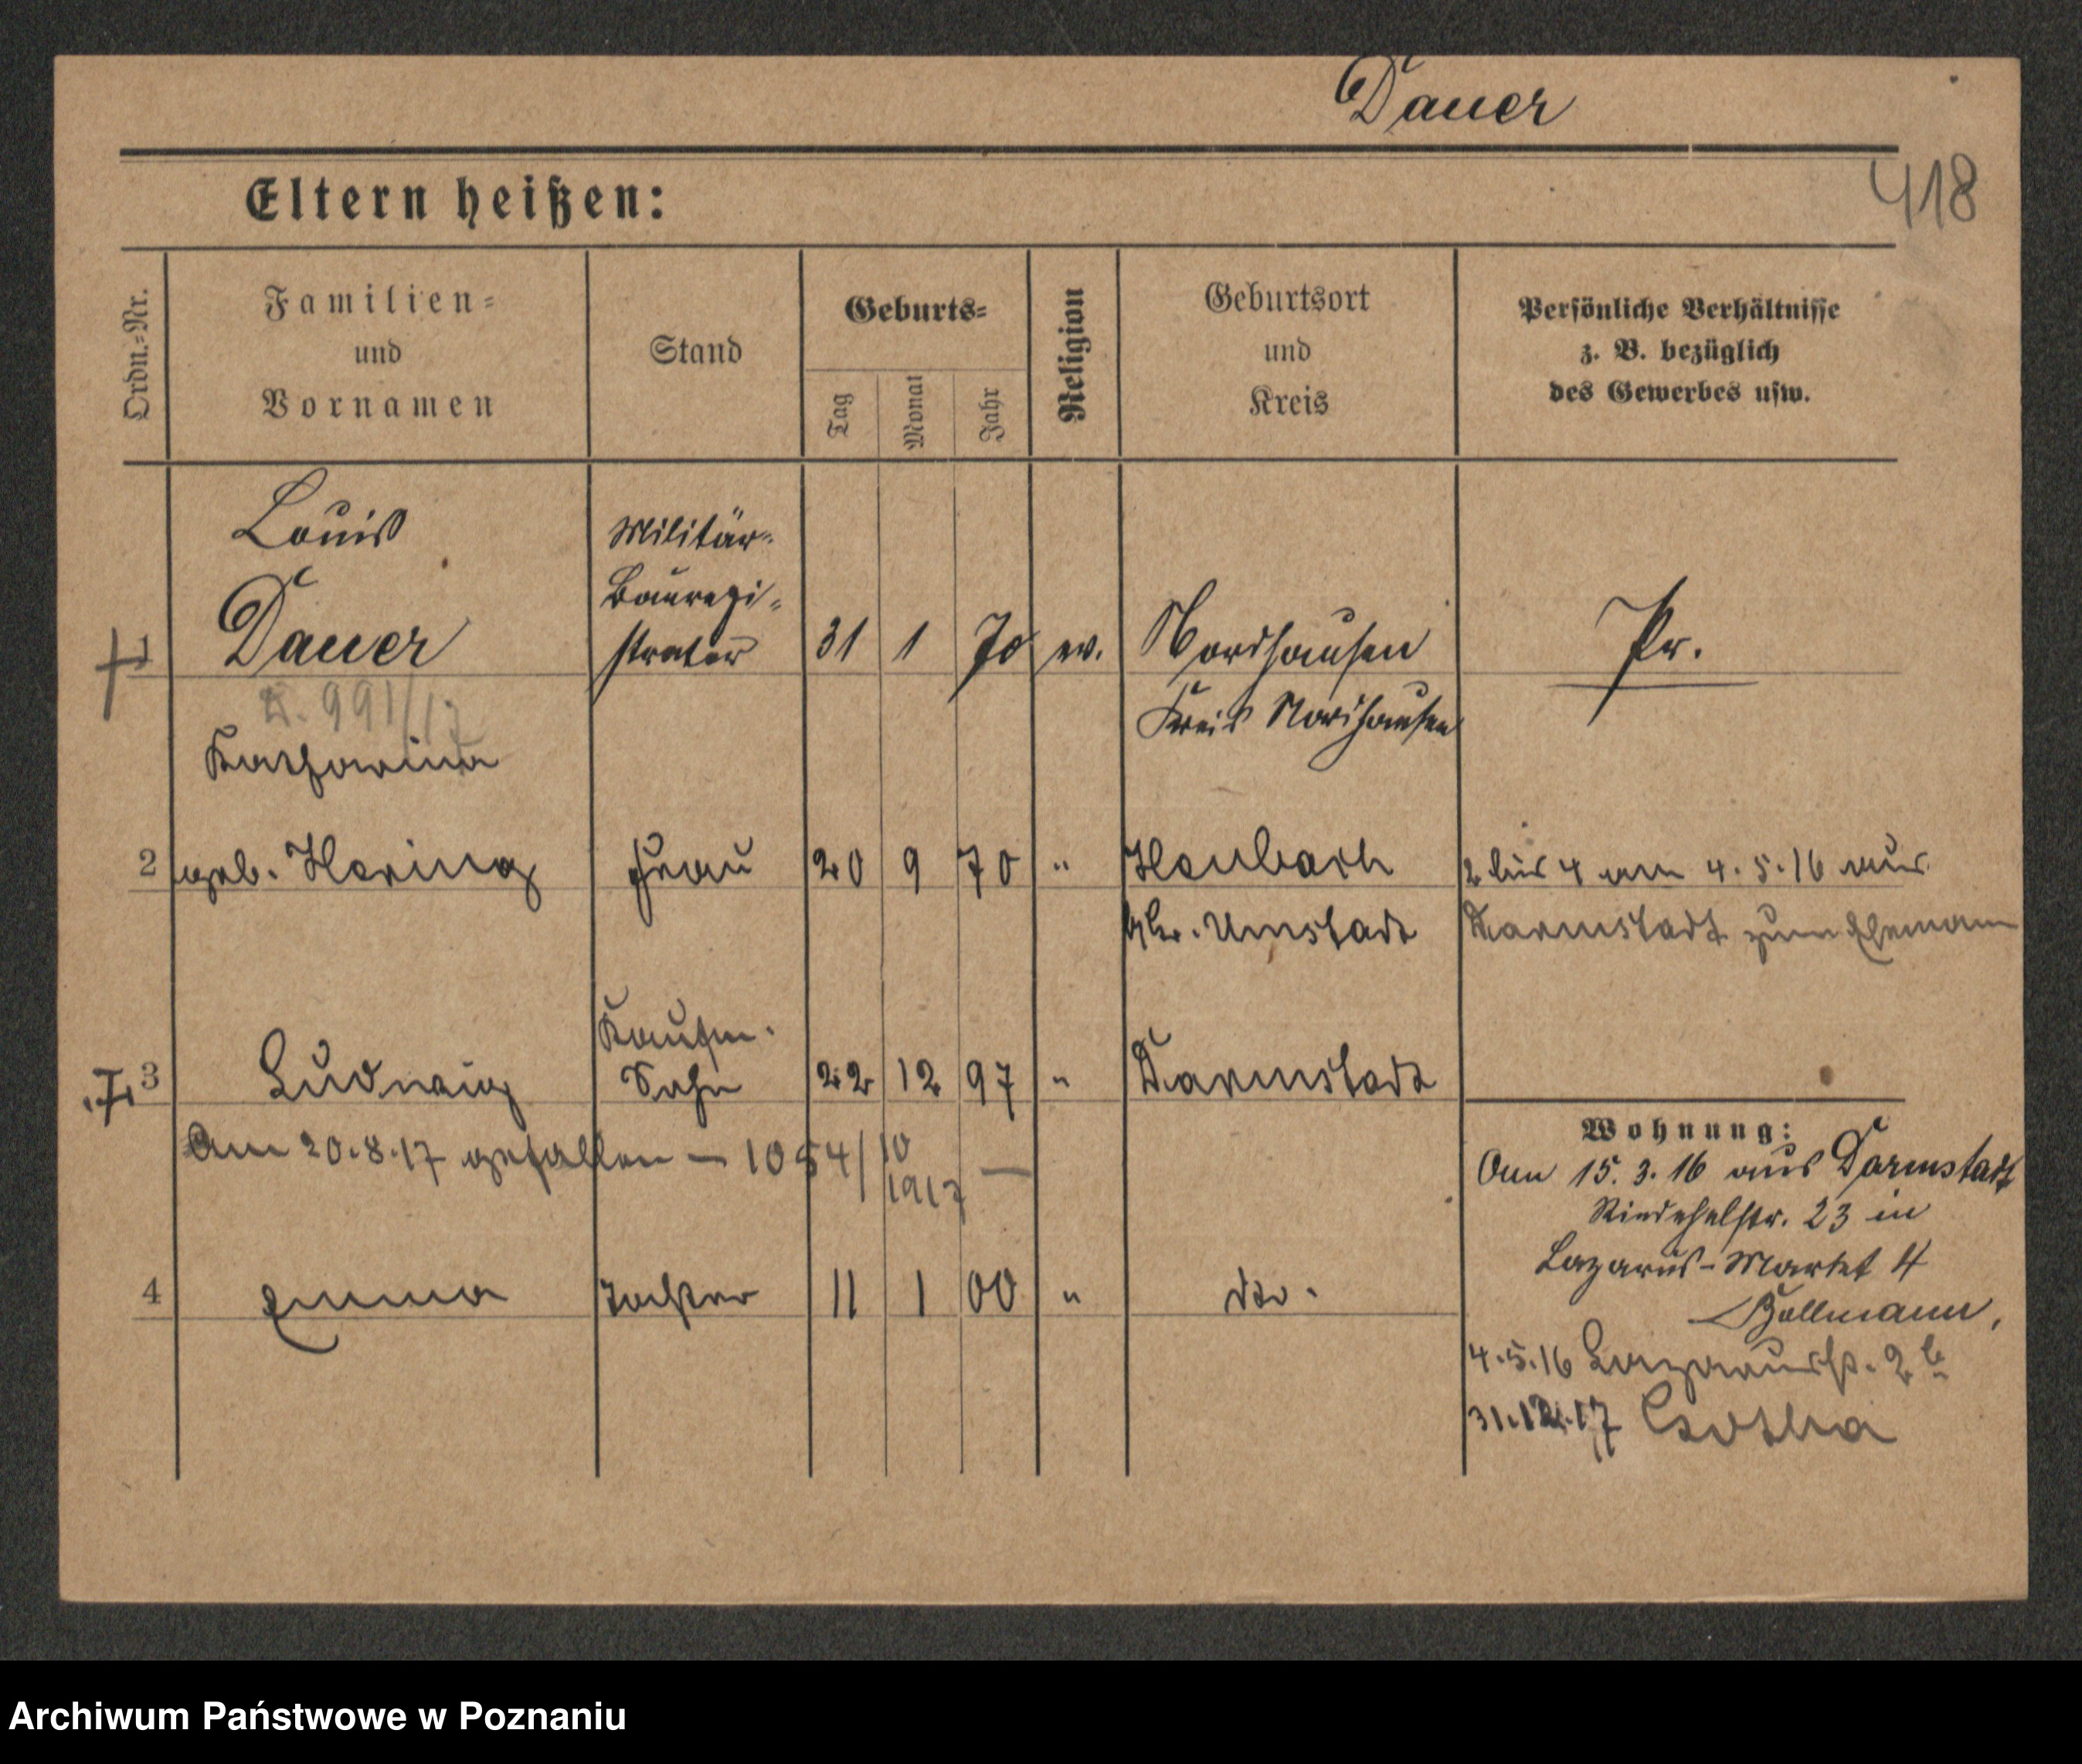 Dauer
418
Eltern heißen:
Ordn.-Nr.
Familien-
und
Vornamen
Stand
Geburts-
Tag
Monat
Jahr
Religion
Geburtsort
und
Kreis
Persönliche Verhältnisse
z. B. bezüglich
des Gewerbes usw.
Louis
Militär-
Bauregi-
1 Dauer strator 31 1 70 ev. Nordhausen Pr.
991/17
Kreis Nordhausen
Katharina
2 geb. Hering Frau 20 9 70 " Heubach 2 bis 4 am 4.5.16 aus
Gr. Umstadt Darmstadt zum Ehemann
Kaufm.
3 Ludwig Sohn 22 12 97 " Darmstadt
Am 20.8.17 gefallen — 1054/10 1917 —
4 Emma Tochter 11 1 00 " do.
Wohnung:
Am 15.3.16 aus Darmstadt
Riedeselstr. 23 in
Lazarus-Markt 4
Bollmann,
4.5.16 Lazarusstr. 2b
31.12.17 Gotha
Archiwum Państwowe w Poznaniu